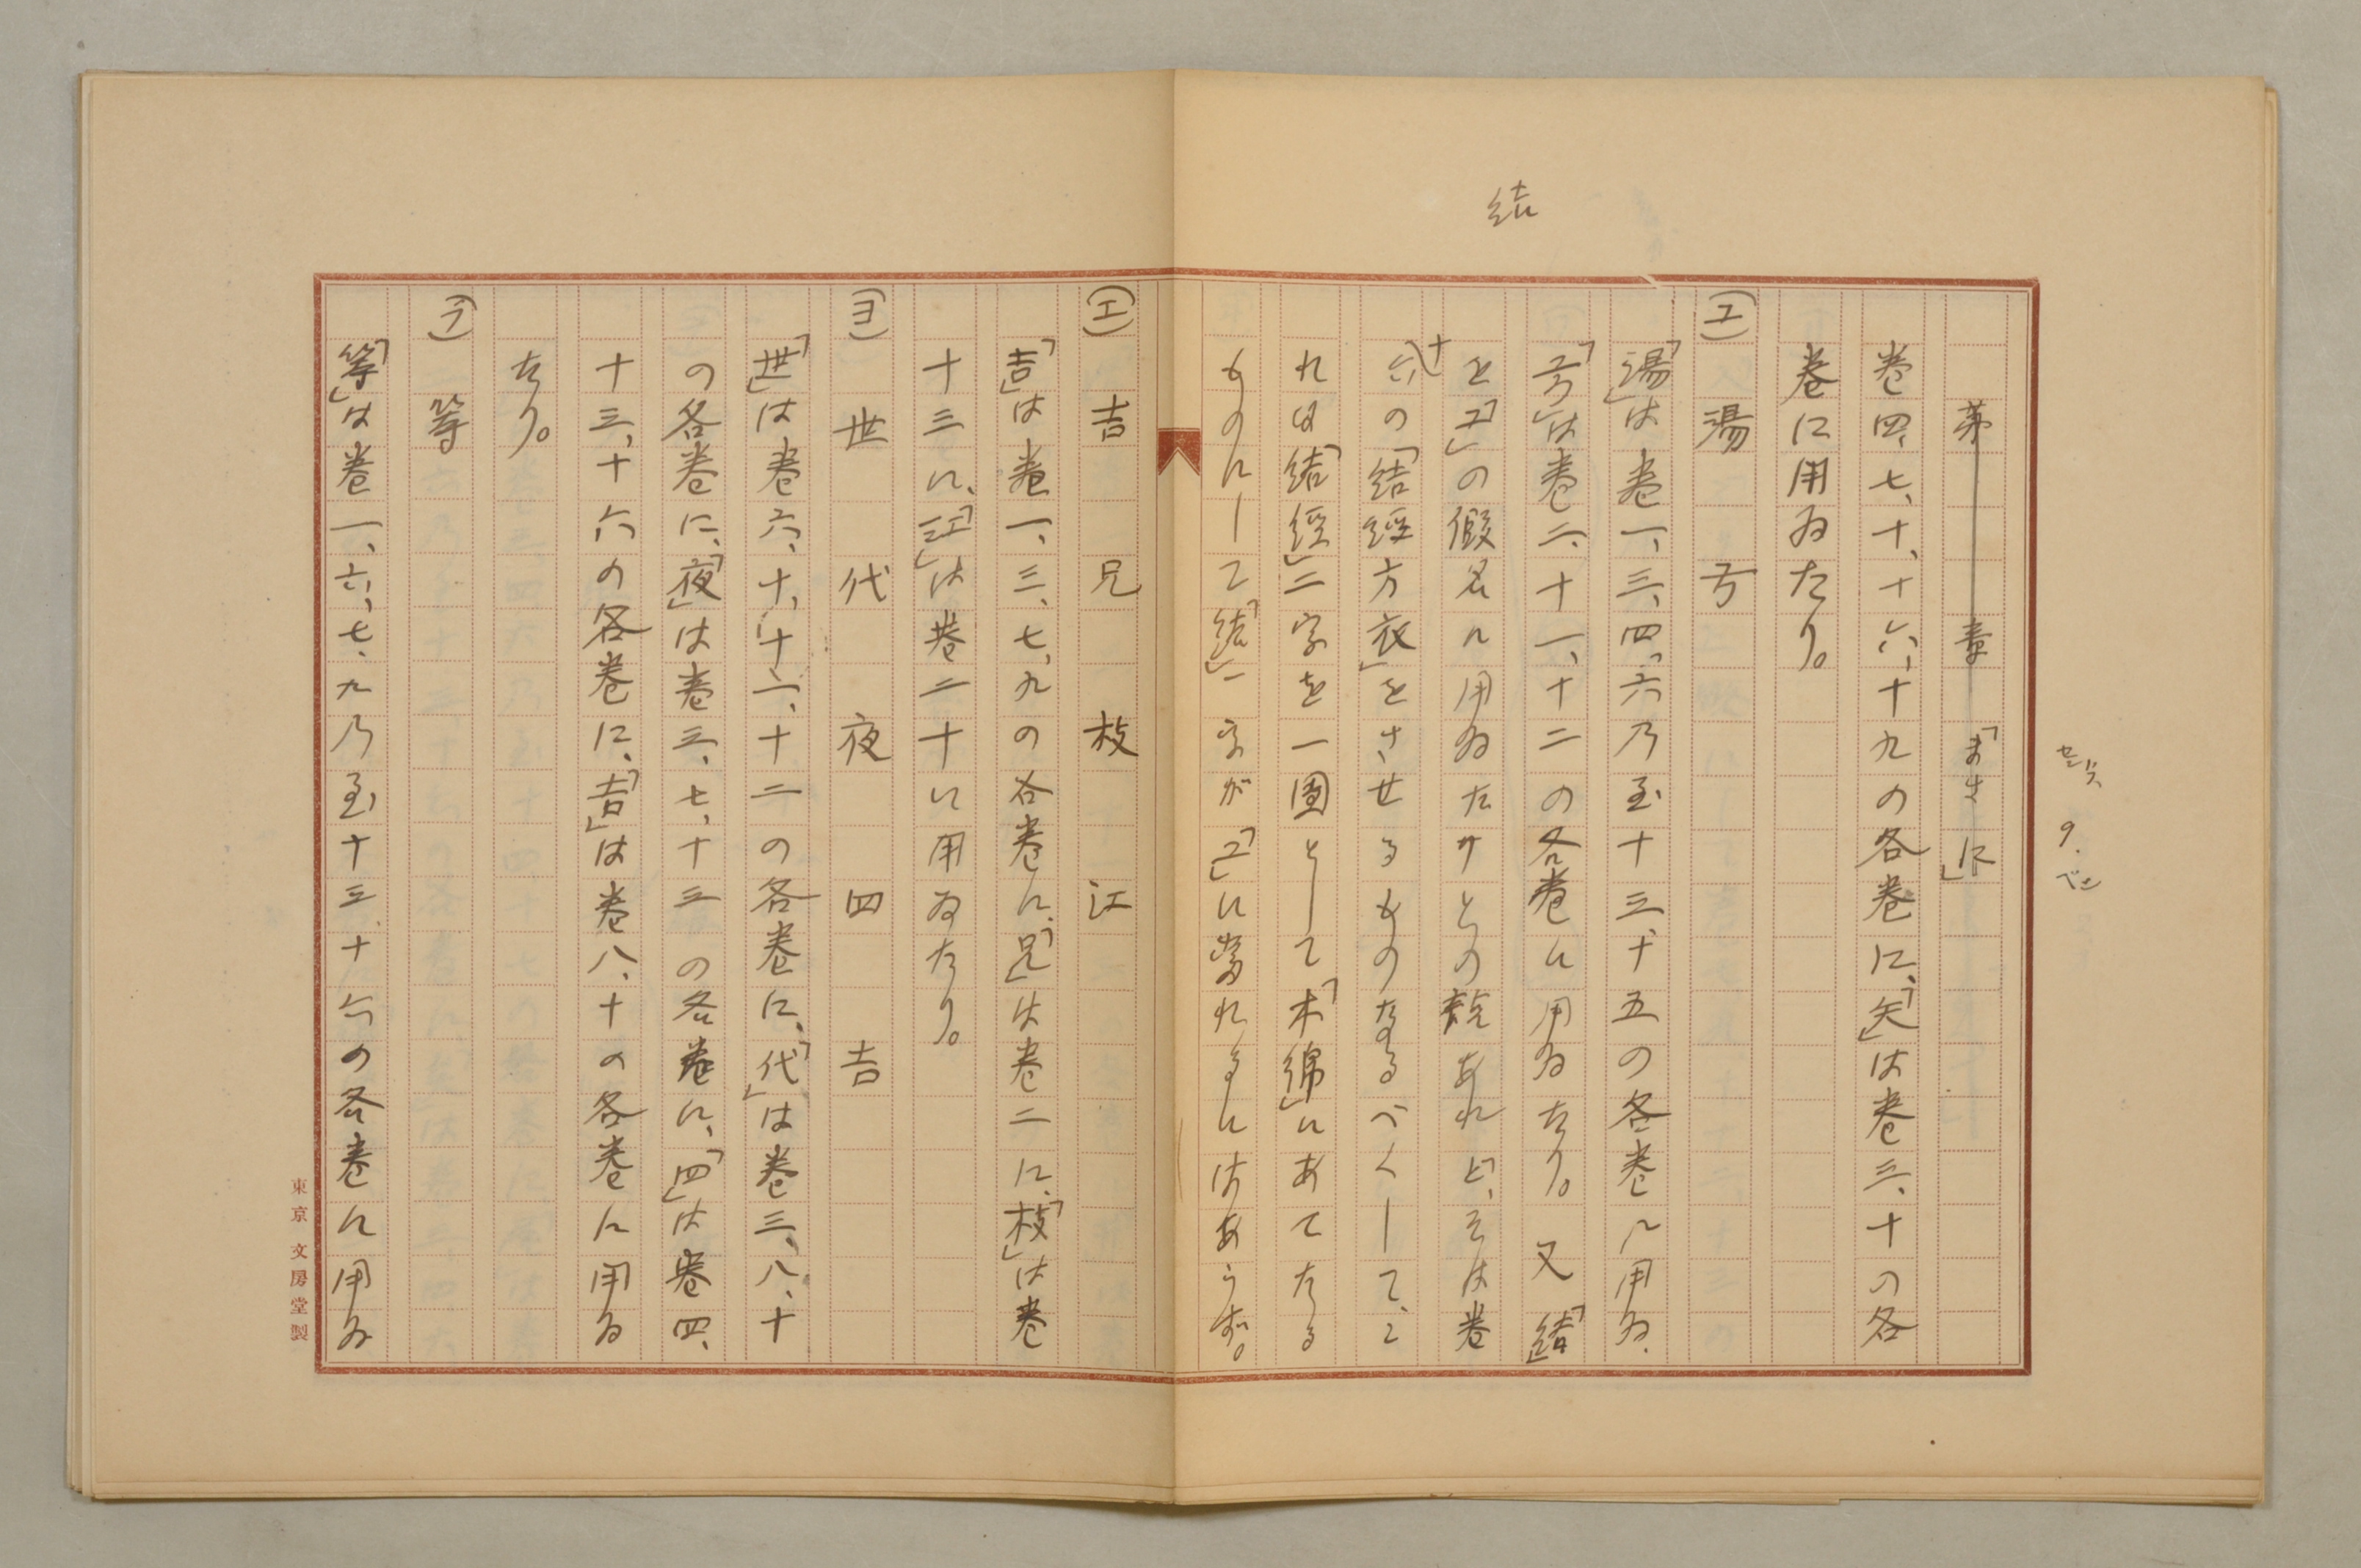 結
第 章 「まさに」
巻四、七、十、十六、十九の各巻に、「矢」は巻三、十の各
巻に用ゐたり。
(ユ) 湯 弓
「湯」は巻一、三、四、六乃至十三、十五の各巻に用ゐ、
「弓」は巻二、十一、十二の各巻に用ゐたり。又「結」
を「ユ」の假名に用ゐたりとの説あれど、そは巻
十六の「結經方衣」をさせるものなるべくして、こ
れは「結經」二字を一團として「木綿」にあてたる
ものにして「結」一字が「ユ」に當れるにはあらず。
(エ) 吉 兄 枝 江
「吉」は巻一、三、七、九の各巻に、「兄」は巻二に、「枝」は巻
十三に、「江」は巻二十に用ゐたり。
(ヨ) 世 代 夜 四 吉
「世」は巻六、十、十一、十二の各巻に、「代」は巻三、八、十
の各巻に、「夜」は巻三、七、十三の各巻に、「四」は巻四、
十三、十六の各巻に、「吉」は巻八、十の各巻に用ゐ
たり。
(ラ) 等
「等」は巻一、六、七、九乃至十三、十六の各巻に用ゐ
東京 文房堂製